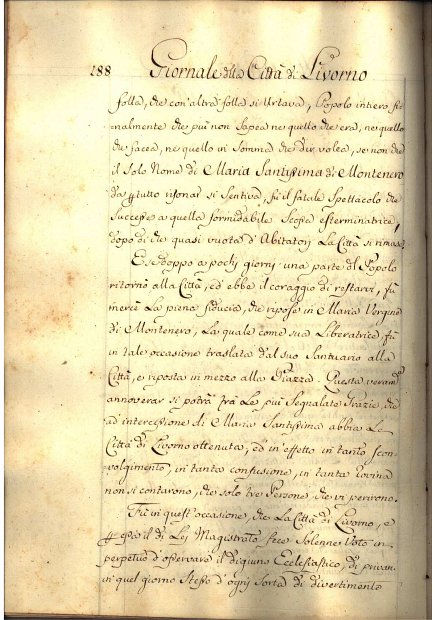 188 Giornale della Città di Livorno
folla, che con altra folla si Urtava, Popolo intiero fi-
nalmente che più non sapea ne quello che era, ne quello
che facea, ne quello in somma che dir volea, se non che
il solo Nome di Maria Santissima di Montenero
da ꝑ tutto risonar si sentiva, fù il fatale spettacolo che
successe a quella formidabile Scossa esterminatrice,
dopo di che quasi vuota d'Abitatori La Città si rimase.
E se doppo a pochi giorni una parte del Popolo
ritornò alla Città, ed ebbe il coraggio di restarvi, fù
mercè La piena fiducia, che ripose in Maria Vergine
di Montenero, La quale come sua Liberatrice fù
in tale occasione traslata dal suo Santuario alla
Città, e riposta in mezzo alla Piazza. Questa veramte
annoverar si potrà trà Le più Segnalate Grazie, che
ad intercessione di Maria Santissima abbia La
Città di Livorno ottenuta, ed in effetto in tanto scon-
volgimento, in tanta confusione, in tanta rovina
non si contarono, che solo tre Persone, che vi perirono.
Fù in quest'occasione, che La Città di Livorno, e
ꝑ essa il di Lei Magistrato fece Solenne Voto in
perpetuo d'osservare il digiuno Ecclesiastico, di privarsi
in quel giorno stesso d'ogni sorta di divertimento